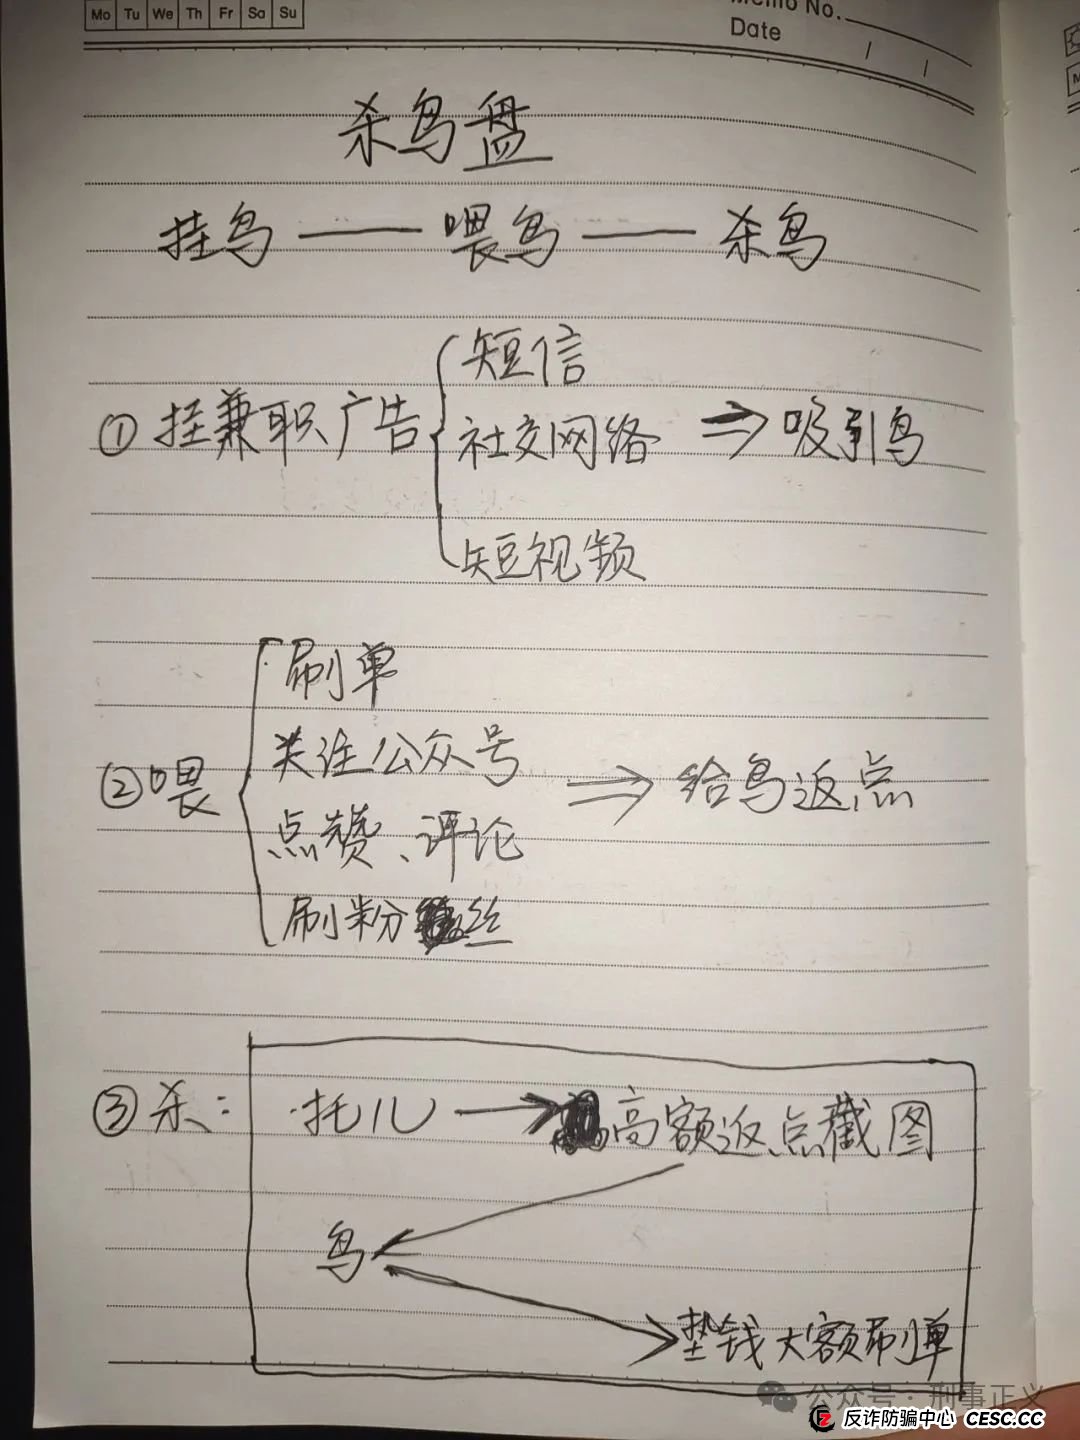 Mo Tu We Th Fr Sa Su
Memo No.
Date / /
杀鸟盘
挂鸟 —— 喂鸟 —— 杀鸟
① 挂兼职广告
短信
社交网络
短视频
⇒ 吸引鸟
② 喂
刷单
关注公众号
点赞、评论
刷粉丝
⇒ 给鸟返点
③ 杀:
托儿 → 高额返点截图
鸟
垫钱大额刷单
公众号·刑事正义
反诈防骗中心 CESC.CC